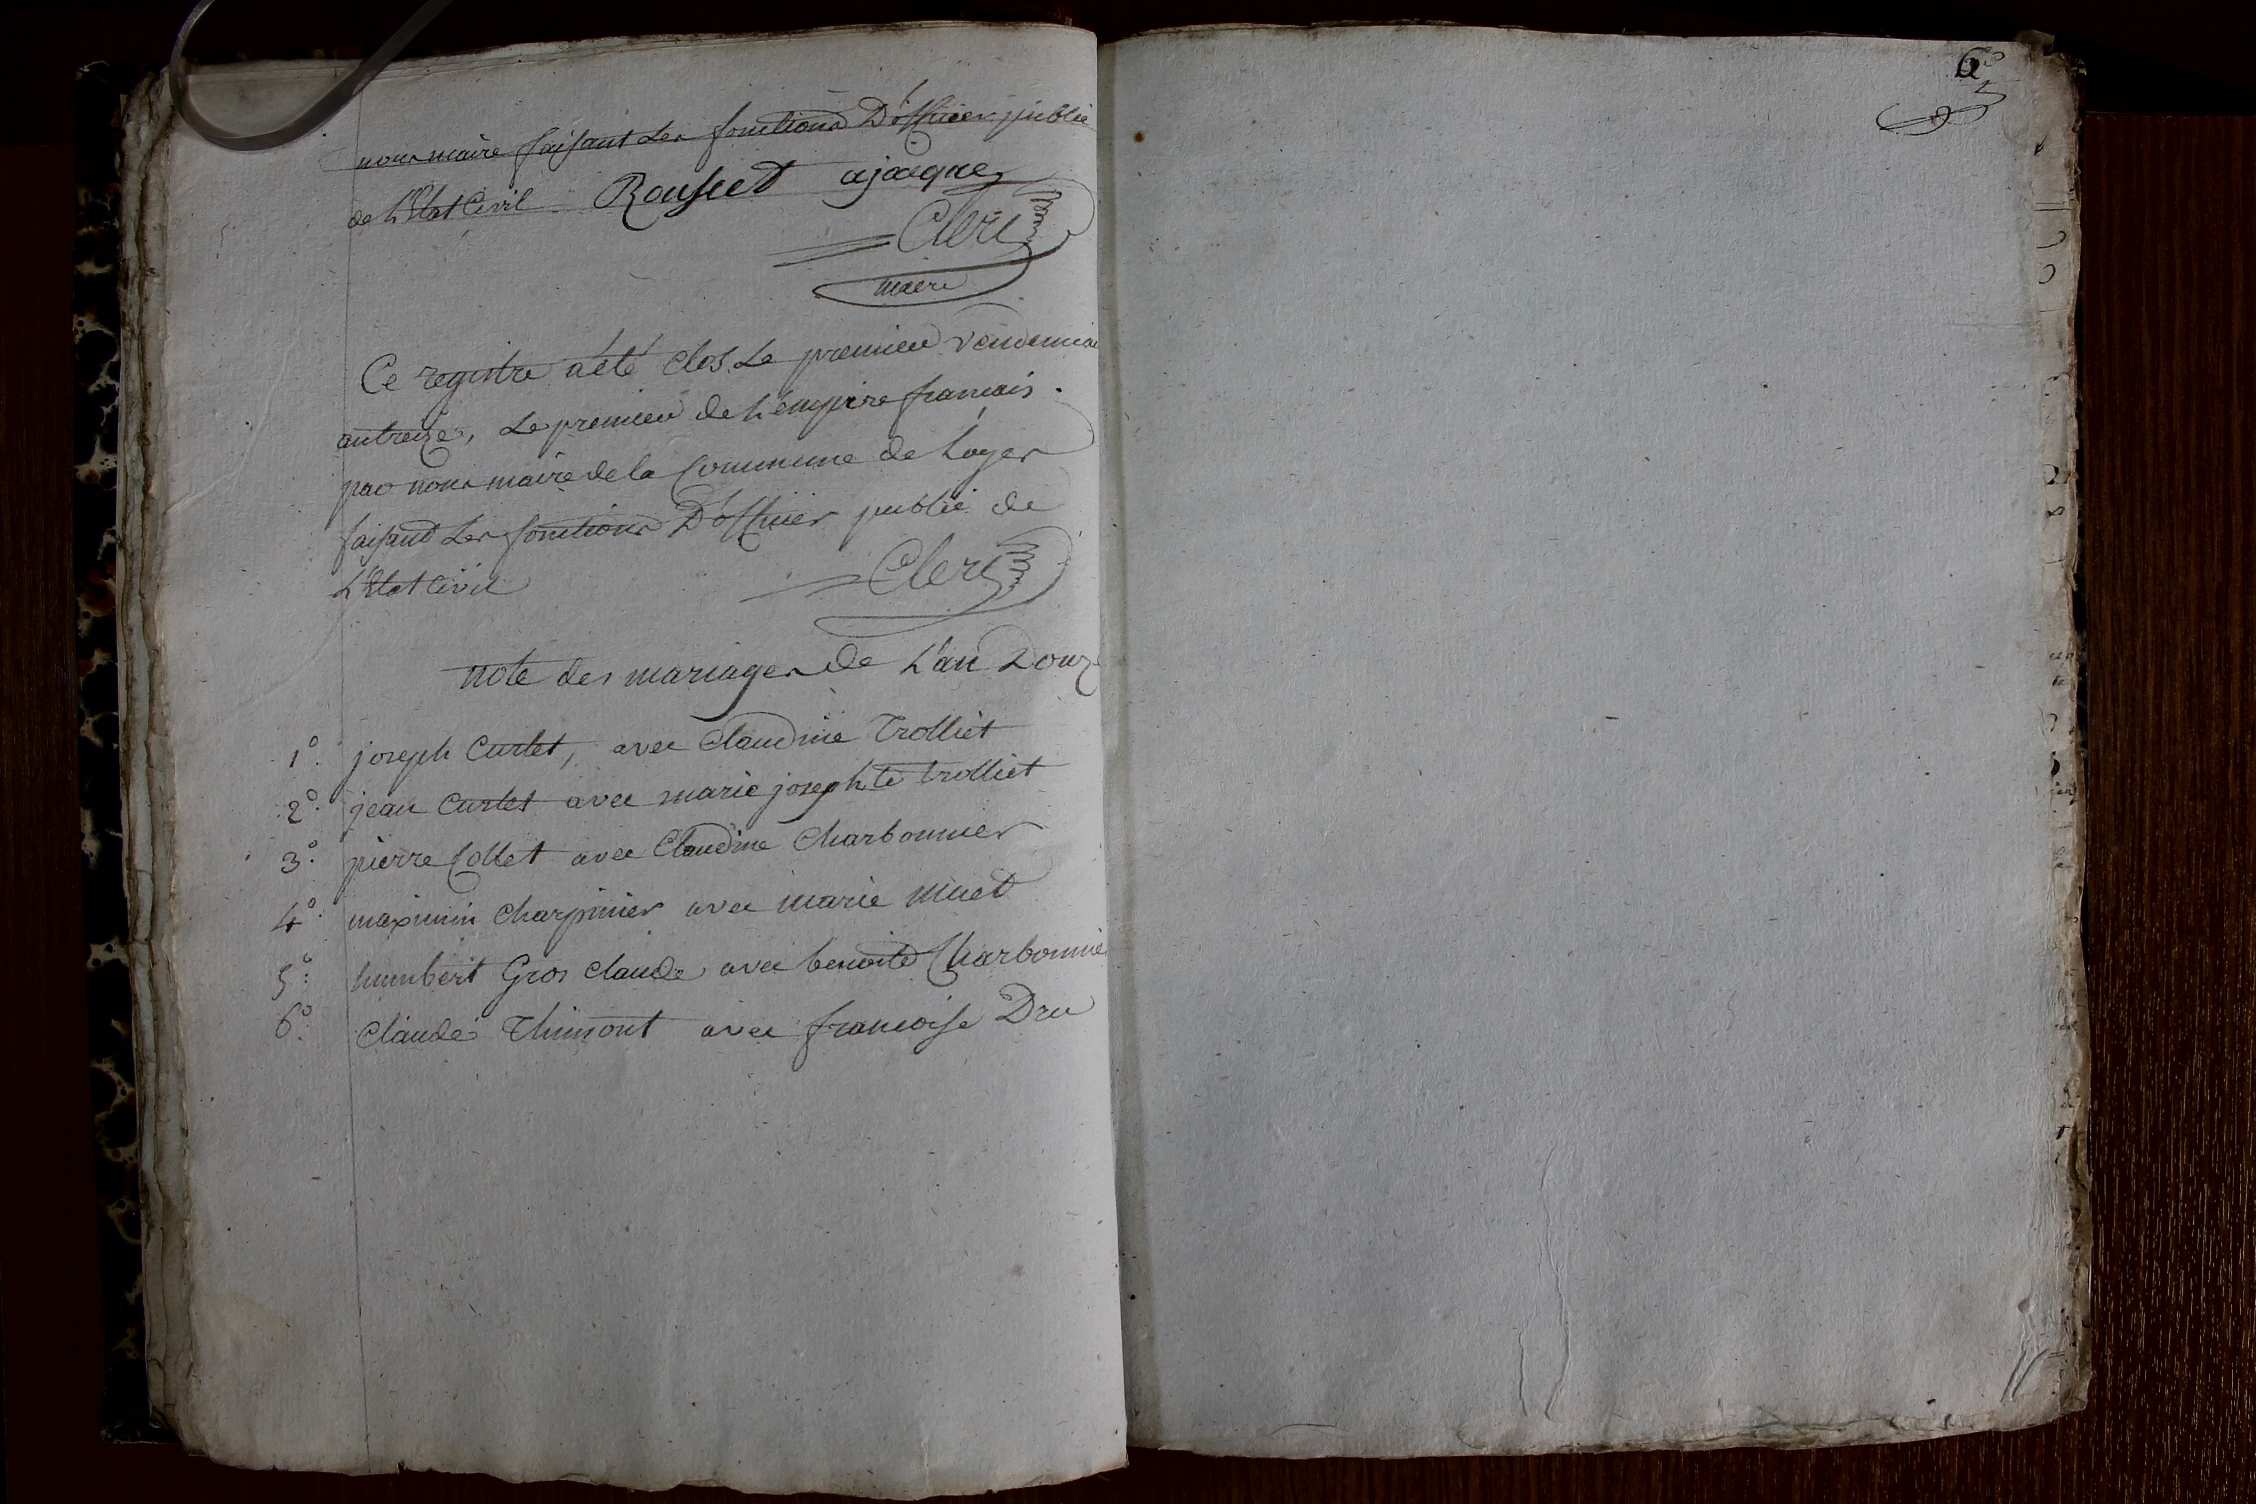 nous maire faisant les fonctions D'officier public
de L'Etat Civil Rousset ajacque
Clerc
maire
Ce registre a été clos le premier vendemiai
an treize, le premier de l'empire francais
par nous maire de la Commune de Loyes
faisant les fonctions D'officier public de
L'Etat Civil Clerc
note des mariages de L'an Douz
1º. joseph Curlet, avec Claudine Trolliet
2º. jean Curlet avec marie josephte trolliet
3º. pierre Collet avec Claudine Charbonnier
4º. maximin Charpinier avec marie muet
5º. humbert Gros claude avec benoite Charbonnie
6º. Claude Thimont avec francoise Dru